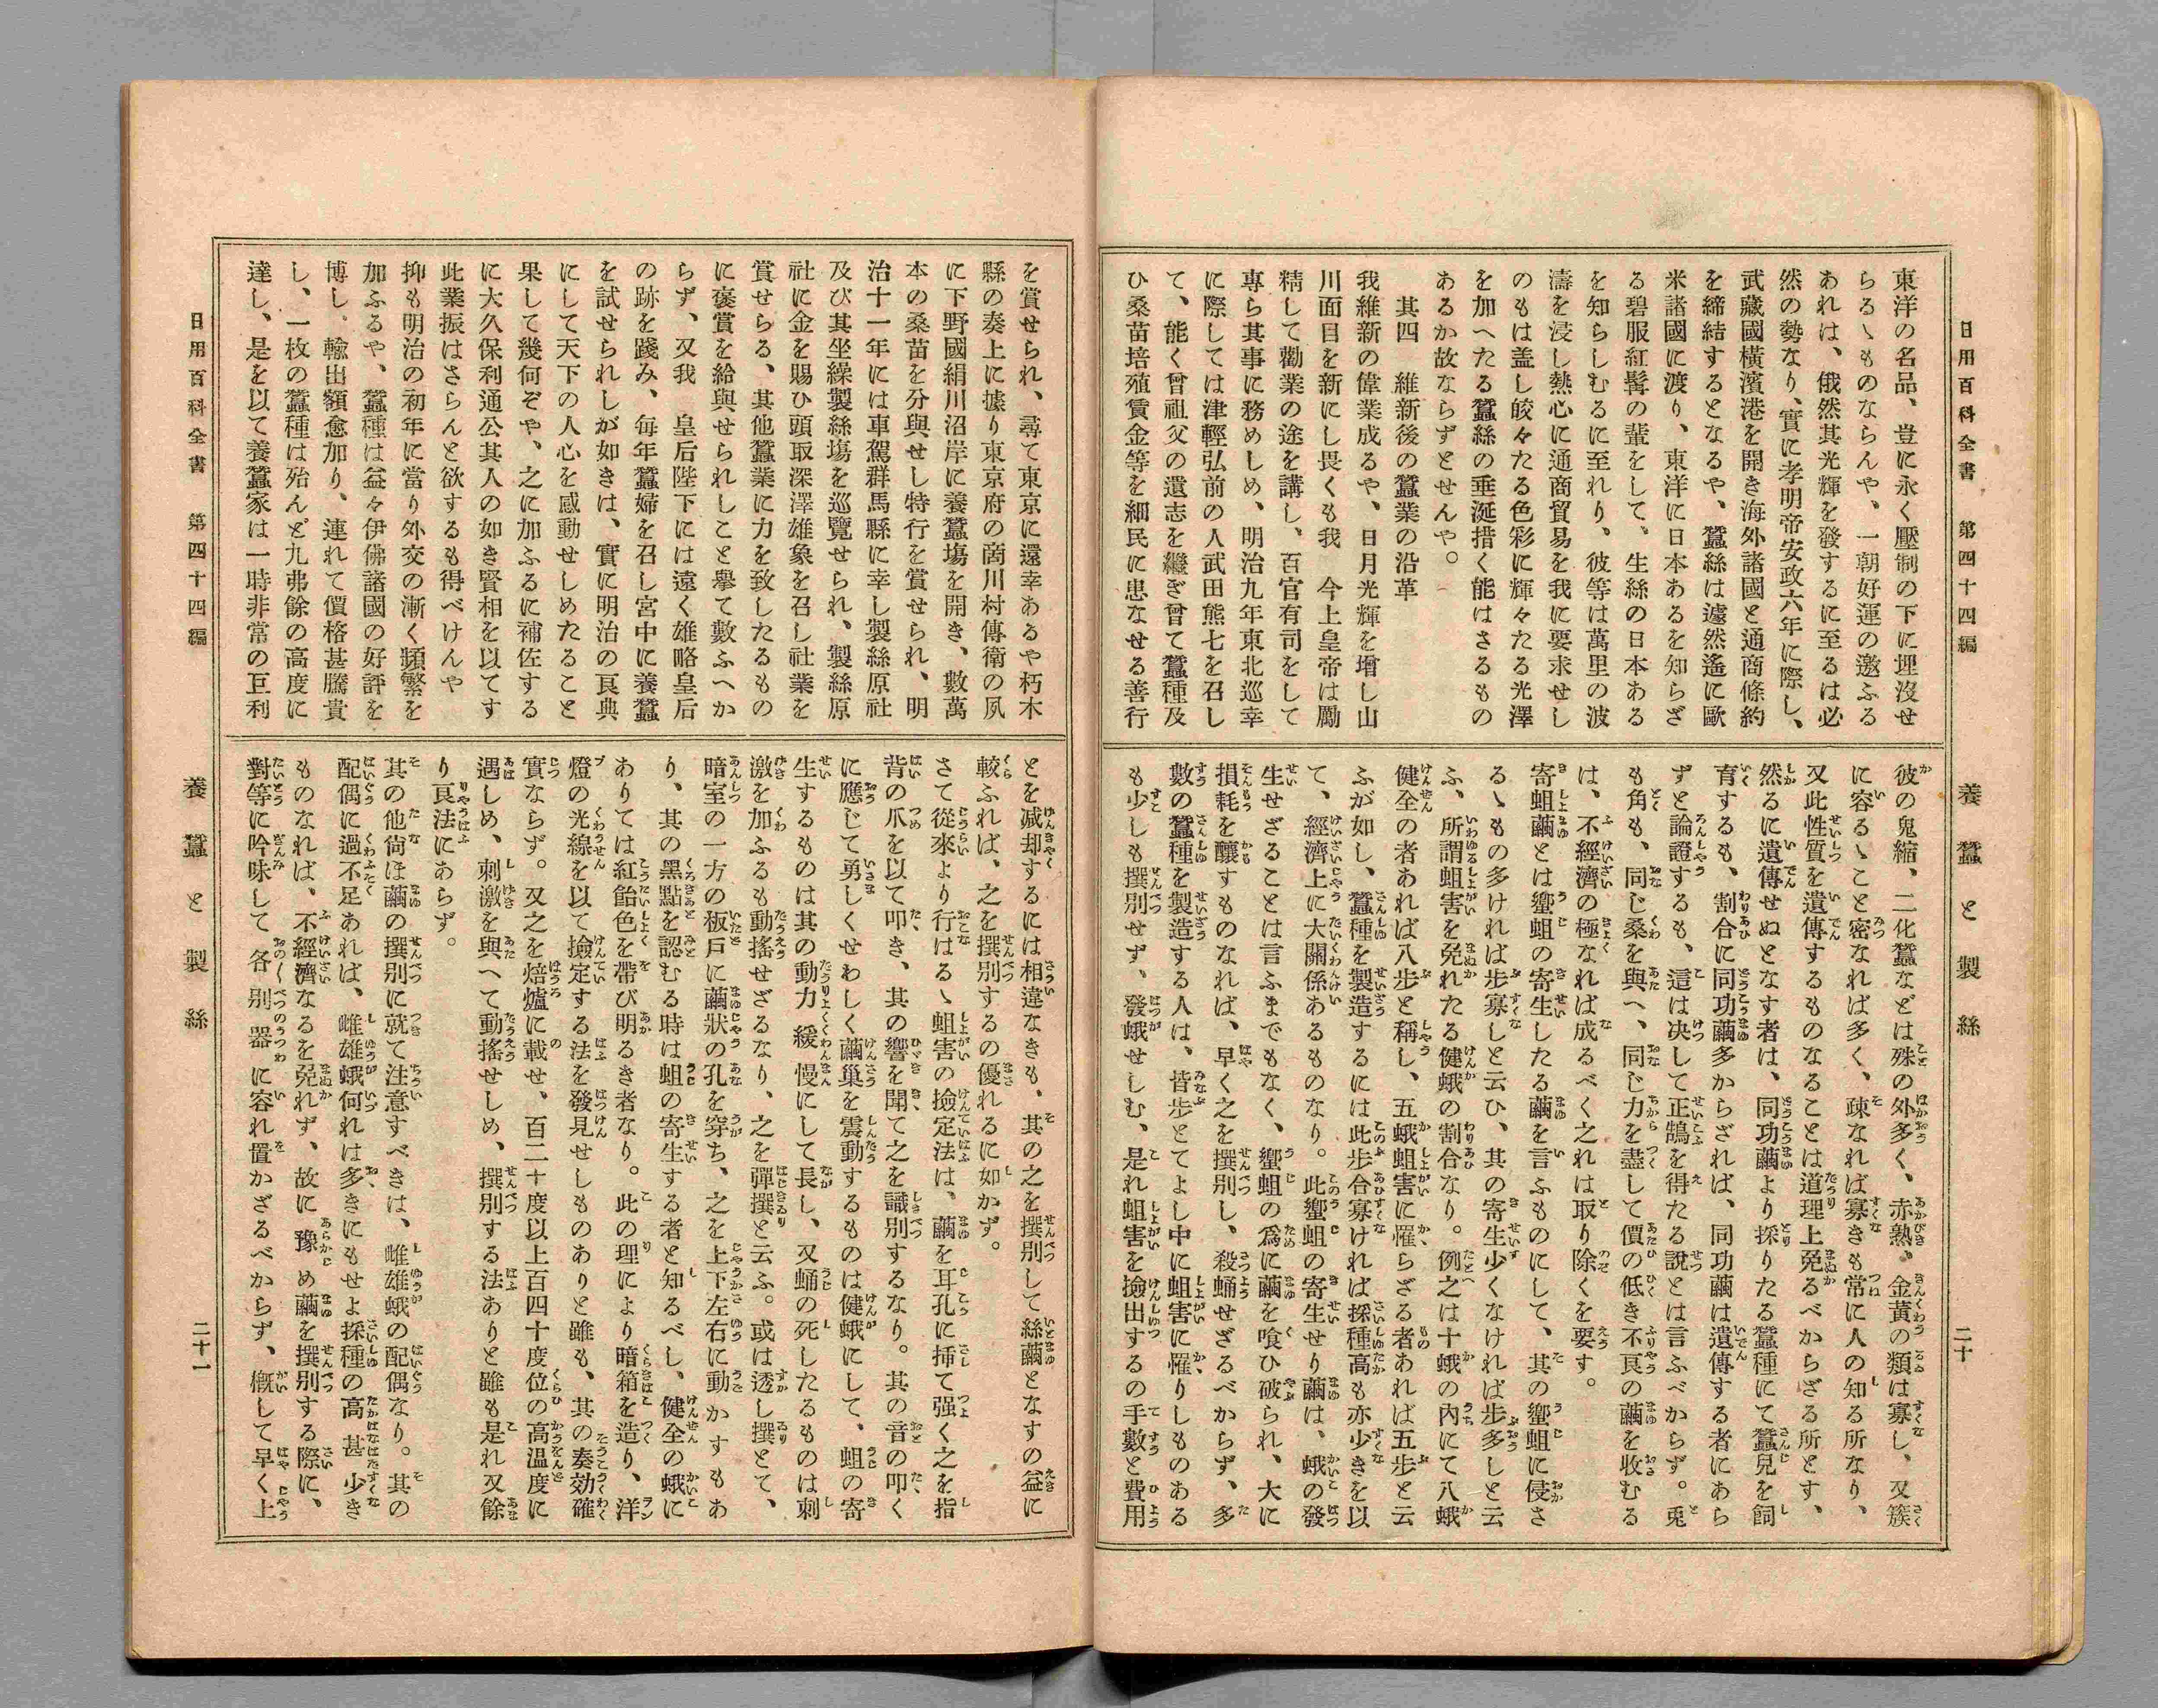 日用百科全書 第四十四編 養蠶と製絲 二十
東洋の名品、豈に永く壓制の下に埋沒せ
らるゝものならんや、一朝好運の邀ふる
あれは、俄然其光輝を發するに至るは必
然の勢なり、實に孝明帝安政六年に際し、
武藏國橫濱港を開き海外諸國と通商條約
を締結するとなるや、蠶絲は遽然遙に歐
米諸國に渡り、東洋に日本あるを知らざ
る碧服紅髯の輩をして、生絲の日本ある
を知らしむるに至れり、彼等は萬里の波
濤を浸し熱心に通商貿易を我に要求せし
のもは盖し皎々たる色彩に輝々たる光澤
を加へたる蠶絲の垂涎措く能はさるもの
あるか故ならずとせんや。
其四 維新後の蠶業の沿革
我維新の偉業成るや、日月光輝を增し山
川面目を新にし畏くも我 今上皇帝は勵
精して勸業の途を講し、百官有司をして
專ら其事に務めしめ、明治九年東北巡幸
に際しては津輕弘前の人武田熊七を召し
て、能く曾祖父の遺志を繼ぎ曾て蠶種及
ひ桑苗培殖賃金等を細民に惠なせる善行
彼の鬼縮、二化蠶などは殊の外多く、赤熟。金黃の類は寡し、又簇
に容るゝこと密なれば多く、疎なれば寡きも常に人の知る所なり、
又此性質を遺傳するものなることは道理上免るべからざる所とす、
然るに遺傳せぬとなす者は、同功繭より採りたる蠶種にて蠶兒を飼
育するも、割合に同功繭多からざれば、同功繭は遺傳する者にあら
ずと論證するも、這は决して正鵠を得たる說とは言ふべからず。兎
も角も、同じ桑を與へ、同じ力を盡して價の低き不良の繭を收むる
は、不經濟の極なれば成るべく之れは取り除くを要す。
寄蛆繭とは蠁蛆の寄生したる繭を言ふものにして、其の蠁蛆に侵さ
るゝもの多ければ步寡しと云ひ、其の寄生少くなければ步多しと云
ふ、所謂蛆害を免れたる健蛾の割合なり。例之は十蛾の內にて八蛾
健全の者あれば八步と稱し、五蛾蛆害に罹らざる者あれば五步と云
ふが如し、蠶種を製造するには此步合寡ければ採種高も亦少きを以
て、經濟上に大關係あるものなり。此蠁蛆の寄生せり繭は、蛾の發
生せざることは言ふまでもなく、蠁蛆の爲に繭を喰ひ破られ、大に
損耗を釀すものなれば、早く之を撰別し、殺蛹せざるべからず、多
數の蠶種を製造する人は、皆步とてよし中に蛆害に罹りしものある
も少しも撰別せず、發蛾せしむ、是れ蛆害を撿出するの手數と費用
を賞せられ、尋て東京に還幸あるや朽木
縣の奏上に據り東京府の商川村傳衛の夙
に下野國絹川沼岸に養蠶塲を開き、數萬
本の桑苗を分與せし特行を賞せられ、明
治十一年には車駕群馬縣に幸し製絲原社
及び其坐繰製絲塲を巡覽せられ、製絲原
社に金を賜ひ頭取深澤雄象を召し社業を
賞せらる、其他蠶業に力を致したるもの
に褒賞を給與せられしこと擧て數ふへか
らず、又我 皇后陛下には遠く雄略皇后
の跡を踐み、每年蠶婦を召し宮中に養蠶
を試せられしが如きは、實に明治の良典
にして天下の人心を感動せしめたること
果して幾何ぞや、之に加ふるに補佐する
に大久保利通公其人の如き賢相を以てす
此業振はさらんと欲するも得べけんや
抑も明治の初年に當り外交の漸く頻繁を
加ふるや、蠶種は益々伊佛諸國の好評を
博し。輸出額愈加り、連れて價格甚騰貴
し、一枚の蠶種は殆んど九弗餘の高度に
達し、是を以て養蠶家は一時非常の巨利
とを減却するには相違なきも、其の之を撰別して絲繭となすの益に
較ふれば、之を撰別するの優れるに如かず。
さて從來より行はるゝ蛆害の撿定法は、繭を耳孔に挿て强く之を指
背の爪を以て叩き、其の響を聞て之を識別するなり。其の音の叩く
に應じて勇しくせわしく繭巢を震動するものは健蛾にして、蛆の寄
生するものは其の動力緩慢にして長し、又蛹の死したるものは刺
激を加ふるも動搖せざるなり、之を彈撰と云ふ。或は透し撰とて、
暗室の一方の板戶に繭狀の孔を穿ち、之を上下左右に動かすもあ
り、其の黑點を認むる時は蛆の寄生する者と知るべし、健全の蛾に
ありては紅飴色を帶び明るき者なり。此の理により暗箱を造り、洋
燈の光線を以て撿定する法を發見せしものありと雖も、其の奏効確
實ならず。又之を焙爐に載せ、百二十度以上百四十度位の高溫度に
遇しめ、刺激を與へて動搖せしめ、撰別する法ありと雖も是れ又餘
り良法にあらず。
其の他尙ほ繭の撰別に就て注意すべきは、雌雄蛾の配偶なり。其の
配偶に過不足あれば、雌雄蛾何れは多きにもせよ採種の高甚少き
ものなれば、不經濟なるを免れず、故に豫め繭を撰別する際に、
對等に吟味して各別器に容れ置かざるべからず、槪して早く上
日用百科全書 第四十四編 養蠶と製絲 二十一